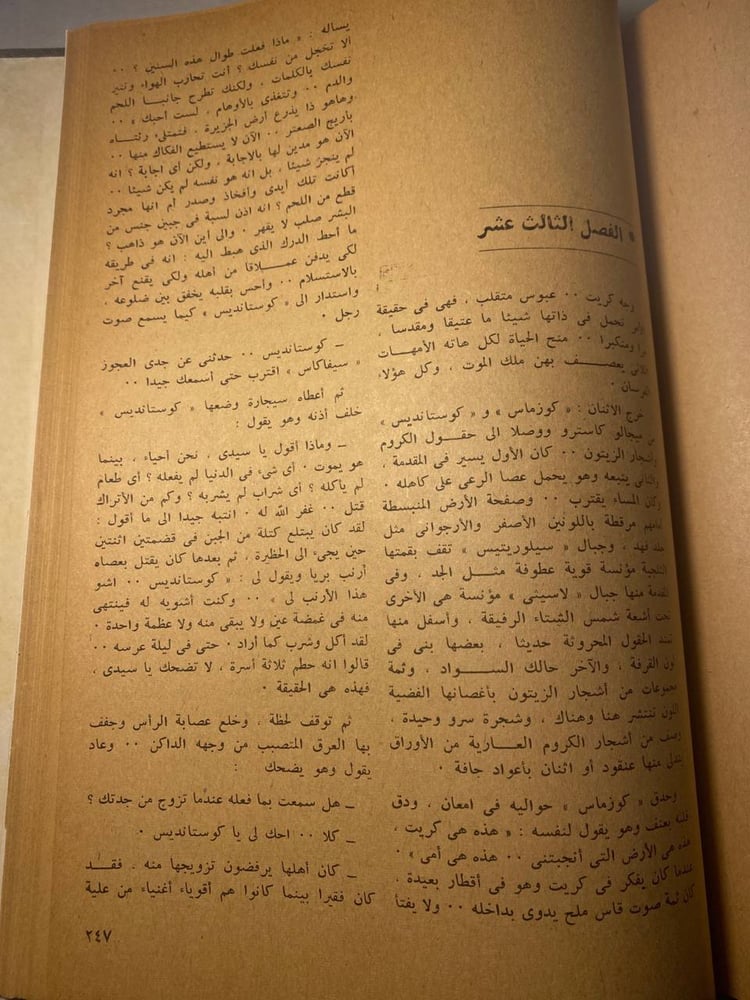 الفصل الثالث عشر
كريت ٠٠ عبوس متقلب ، فهى فى حقيقة
تحمل فى ذاتها شيئا ما عتيقا ومقدسا ،
ومتكبرا ٠٠ منح الحياة لكل هاته الأمهات
يعصف بهن ملك الموت ، وكل هؤلاء
خرج الاثنان : « كوزماس » و « كوستانديس »
ميجالو كاسترو ووصلا الى حقول الكروم
وأشجار الزيتون ٠٠ كان الأول يسير فى المقدمة ،
والثانى يتبعه وهو يحمل عصا الرعى على كاهله ٠
وكان المساء يقترب ٠٠ وصفحة الأرض المنبسطة
أمامهم مرقطة باللونين الأصفر والأرجوانى مثل
جلد فهد ، وجبال « سيلوريتيس » تقف بقمتها
الثلجية مؤنسة قوية عطوفة مثل الجد ، وفى
المقدمة منها جبال « لاسيتى » مؤنسة هى الأخرى
تحت أشعة شمس الشتاء الرقيقة ، وأسفل منها
تمتد الحقول المحروثة حديثا ، بعضها بنى فى
لون القرفة ، والآخر حالك السواد ، وثمة
مجموعات من أشجار الزيتون بأغصانها الفضية
اللون تنتشر هنا وهناك ، وشجرة سرو وحيدة ،
وصف من أشجار الكروم العارية من الأوراق
يتدلى منها عنقود أو اثنان بأعواد جافة ٠
وحدق « كوزماس » حواليه فى امعان ، ودق
قلبه بعنف وهو يقول لنفسه : « هذه هى كريت ،
هذه هى الأرض التى أنجبتنى ٠٠ هذه هى أمى » ٠
عندما كان يفكر فى كريت وهو فى أقطار بعيدة ،
كان ثمة صوت قاس ملح يدوى بداخله ٠٠ ولا يفتأ
يسأله : « ماذا فعلت طوال هذه السنين ؟ ٠٠
ألا تخجل من نفسك ؟ أنت تحارب الهواء وتثير
نفسك بالكلمات ، ولكنك تطرح جانبا اللحم
والدم ٠٠ وتتغذى بالأوهام ، لست أحبك » ٠٠
وهاهو ذا يذرع أرض الجزيرة ، فتمتلىء رئتاه
بأريج الصعتر ٠٠ الآن لا يستطيع الفكاك منها ٠٠
الآن هو مدين لها بالاجابة ، ولكن أى اجابة ؟ انه
لم ينجز شيئا ، بل انه هو نفسه لم يكن شيئا ٠٠
أكانت تلك أيدى وأفخاذ وصدر أم انها مجرد
قطع من اللحم ؟ انه اذن لسبة فى جبين جنس من
البشر صلب لا يقهر ٠ والى أين الآن هو ذاهب ؟
ما أحط الدرك الذى هبط اليه : انه فى طريقه
لكى يدفن عملاقا من أهله ولكى يقنع آخر
بالاستسلام ٠٠ وأحس بقلبه يخفق بين ضلوعه ،
واستدار الى « كوستانديس » كيما يسمع صوت
رجل ٠
ـ كوستانديس ٠٠ حدثنى عن جدى العجوز
« سيفاكاس » اقترب حتى أسمعك جيدا ٠٠
ثم أعطاه سيجارة وضعها « كوستانديس »
خلف أذنه وهو يقول :
ـ وماذا أقول يا سيدى ، نحن أحياء ، بينما
هو يموت ٠ أى شىء فى الدنيا لم يفعله ؟ أى طعام
لم يأكله ؟ أى شراب لم يشربه ؟ وكم من الأتراك
قتل ٠٠ غفر الله له ٠ انتبه جيدا الى ما أقول :
لقد كان يبتلع كتلة من الجبن فى قضمتين اثنتين
حين يجىء الى الحظيرة ، ثم بعدها كان يقتل بعصاه
أرنب بريا ويقول لى : « كوستانديس ٠٠ اشو
هذا الأرنب لى » ٠٠ وكنت أشويه له فينتهى
منه فى غمضة عين ولا يبقى منه ولا عظمة واحدة ٠
لقد أكل وشرب كما أراد ٠ حتى فى ليلة عرسه ٠٠
قالوا انه حطم ثلاثة أسرة ، لا تضحك يا سيدى ،
فهذه هى الحقيقة ٠
ثم توقف لحظة ، وخلع عصابة الرأس وجفف
بها العرق المتصبب من وجهه الداكن ٠٠ وعاد
يقول وهو يضحك :
ـ هل سمعت بما فعله عندما تزوج من جدتك ؟
ـ كلا ٠٠ احك لى يا كوستانديس ٠
ـ كان أهلها يرفضون تزويجها منه ، فقد
كان فقيرا بينما كانوا هم أقوياء أغنياء من علية
٢٤٧